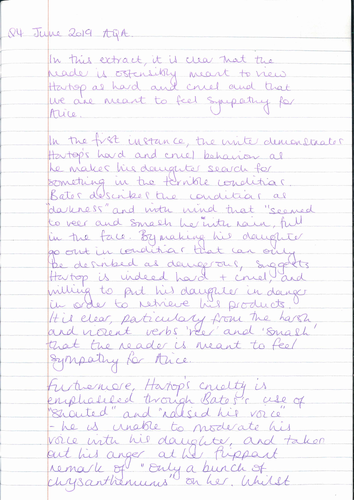 Q4 June 2019 AQA.
In this extract, it is clear that the
reader is ostensibly meant to view
Hartop as hard and cruel and that
we are meant to feel sympathy for
Alice.
In the first instance, the writer demonstrates
Hartop's hard and cruel behavior as
he makes his daughter search for
something in the terrible conditions.
Bates describes the conditions as
"darkness" and with wind that "seemed
to veer and smash her with rain, full
in the face. By making his daughter
go out in conditions that can only
be described as dangerous, suggests
Hartop is indeed hard + cruel, and
willing to put his daughter in danger
in order to retrieve his products.
It is clear, particularly from the harsh
and violent verbs 'veer' and 'smash'
that the reader is meant to feel
sympathy for Alice.
Furthermore, Hartop's cruelty is
emphasised through Bates's use of
"shouted" and "raised his voice"
- he is unable to moderate his
voice with his daughter, and takes
out his anger at her flippant
remark of "only a bunch of
chrysanthemums" on her. Whilst